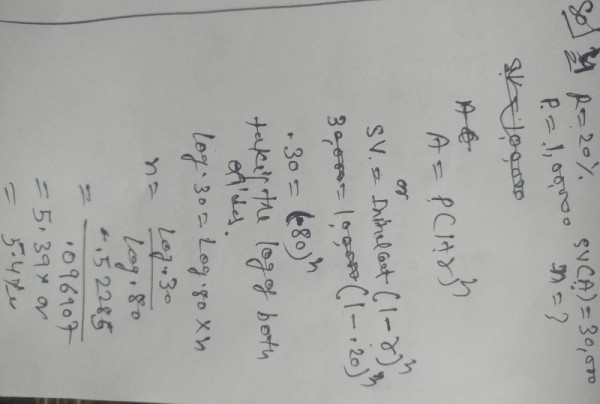 Sol
R = 20% SV(A) = 30,000
P = 1,00,000 n = ?
A = P(1+r)^n
or
S.V. = Initial Cost (1-r)^n
30,000 = 1,00,000 (1-.20)^n
.30 = (.80)^n
taking the log of both sides.
log .30 = log .80 × n
n = log .30 / log .80
= .52285 / .096907
= 5.39 yr or
= 5.4 yr